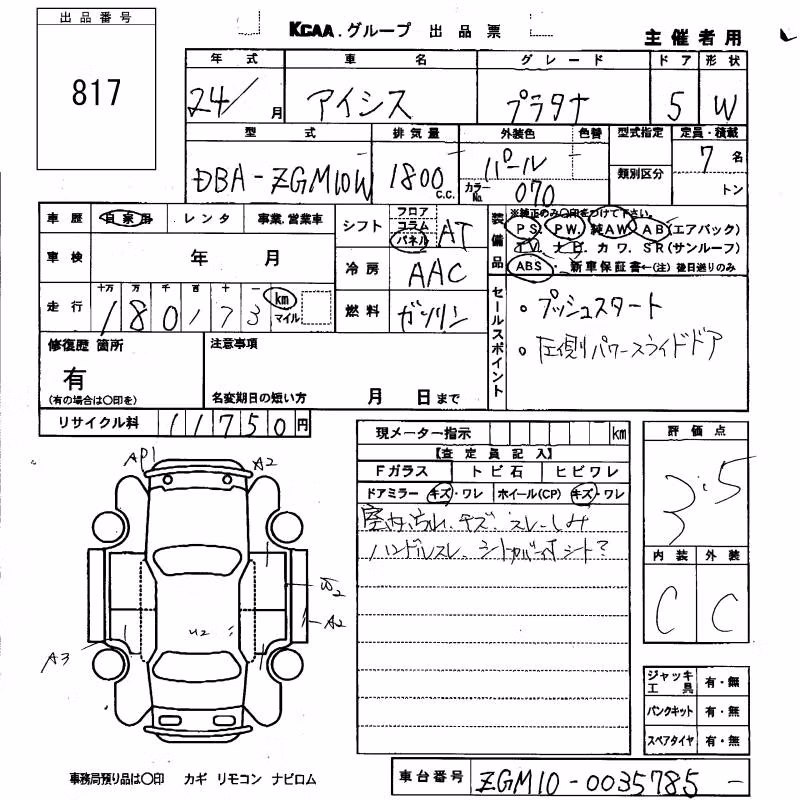 出品番号
817
KCAA.グループ 出品票
主催者用
年式 車名 グレード ドア 形状
24/ 月 アイシス プラタナ 5 W
型式 排気量 外装色 色替 型式指定 定員・積載
DBA-ZGM10W 1800 c.c. パール 7名
カラーNo. 070 類別区分 トン
車歴 自家用 レンタ 事業.営業車
シフト フロア コラム パネル AT
装備品 ※純正のみ○印をつけて下さい。
PS. PW. 純AW AB(エアバック)
TV. ナビ. カワ. SR(サンルーフ)
ABS・ 新車保証書←(注)後日送りのみ
車検 年 月
冷房 AAC
走行 十万 万 千 百 十 一
180173 km マイル
燃料 ガソリン
セールスポイント
。プッシュスタート
。左側パワースライドドア
修復歴 箇所
有
(有の場合は○印を)
注意事項
名変期日の短い方 月 日まで
リサイクル料 11750円
現メーター指示 km
【査定員記入】
Fガラス トビ石 ヒビワレ
ドアミラー キズ・ワレ ホイール(CP) キズ・ワレ
室内汚れ.キズ.スレ.しみ
ハンドルスレ.シートカバー付シート?
評価点
3.5
内装 外装
C C
AP1
A2
W2
A2
U2
A3
ジャッキ工具 有・無
パンクキット 有・無
スペアタイヤ 有・無
事務局預り品は○印 カギ リモコン ナビロム
車台番号 ZGM10-0035785-